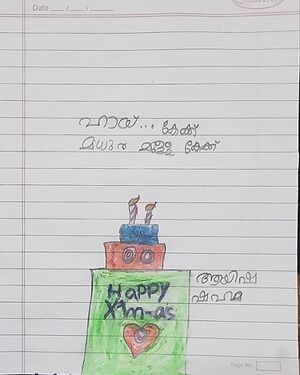 Date
ഹായ്... കേക്ക്
മധുര മുള്ള കേക്ക്
Happy
X'm-as
ആയിഷ
ഷഹമ
Page No.